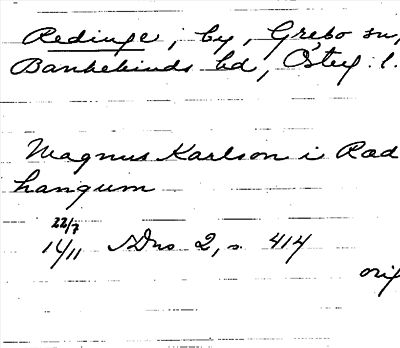 Redinge, by, Grebo sn,
Bankekinds hd, Östeg. l.
Magnus Karlson i Rœd
hangum
22/7
1411 SDns 2, s. 414
orig